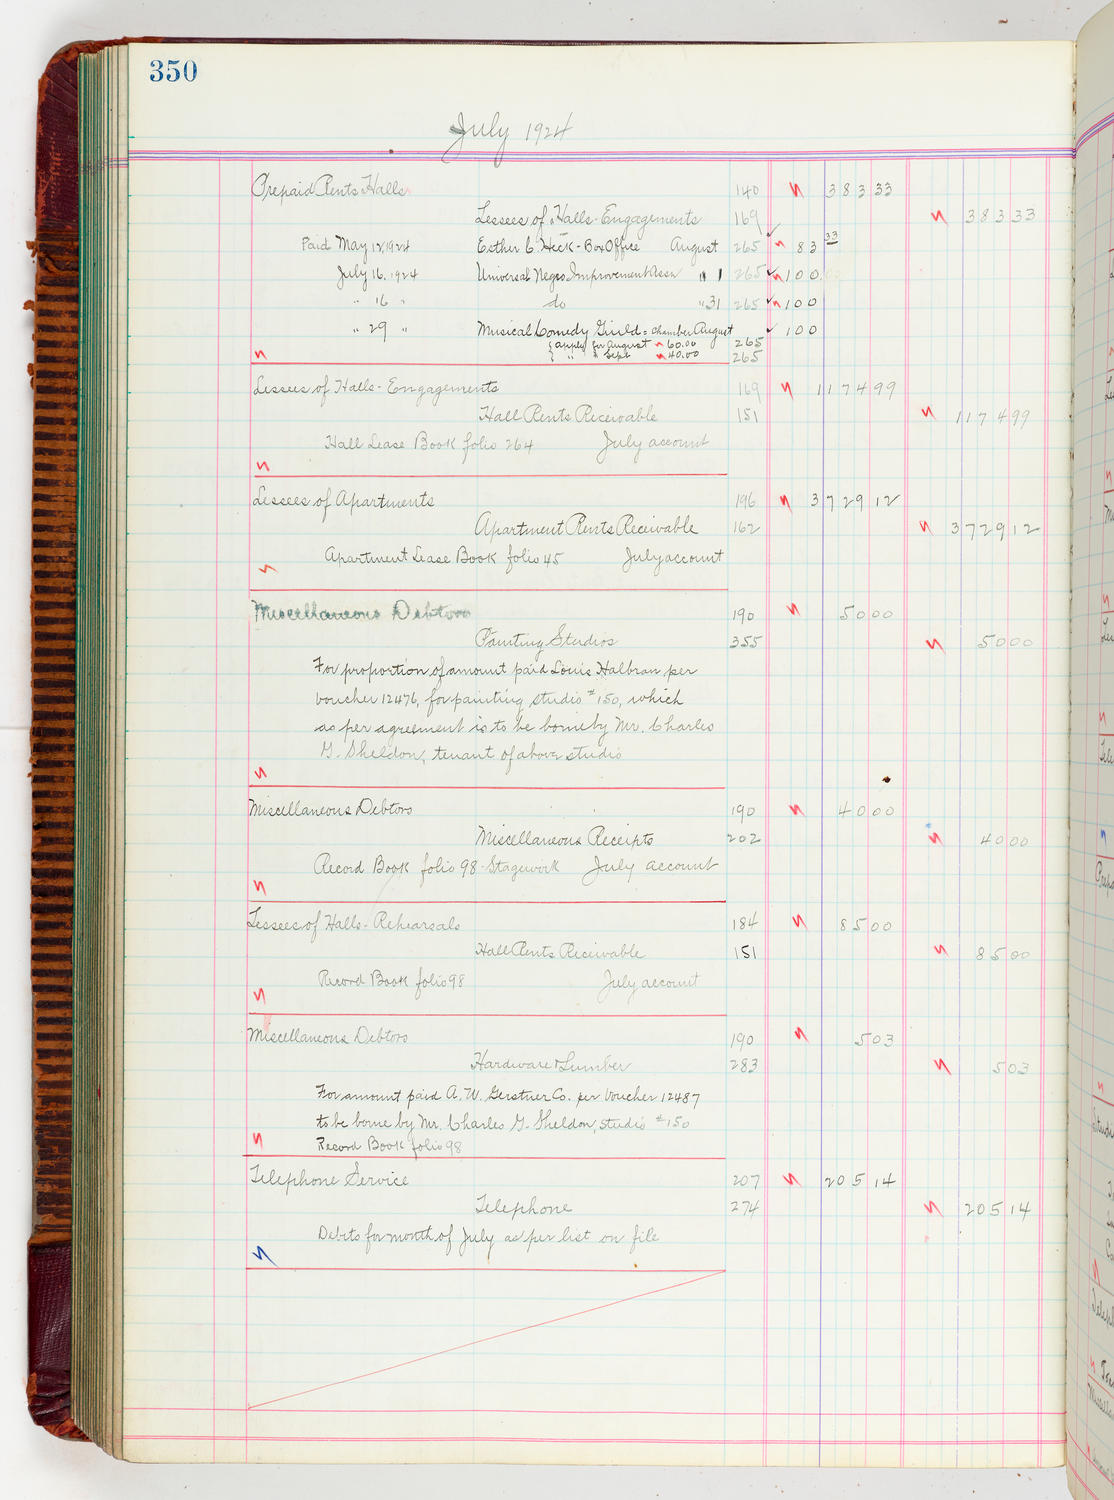 350
July 1924
Prepaid Rents Halls 140 383 33
Lessees of Halls - Engagements 169 383 33
Paid May 12, 1924 Esther C. Heck - Box Office August 265 83 33
July 16. 1924 Universal Negro Improvement Assn " 1 265 100.00
" 16 " do " 31 265 100
" 29 " Musical Comedy Guild = chamber August 100
{ apply for August 60.00 265
{ " " Sept 40.00 265
Lessees of Halls - Engagements 169 1174 99
Hall Rents Receivable 151 1174 99
Hall Lease Book folio 264 July account
Lessees of Apartments 196 3729 12
Apartment Rents Receivable 162 3729 12
Apartment Lease Book folio 45 July account
Miscellaneous Debtors 190 50 00
Painting Studios 355 50 00
For proportion of amount paid Louis Halbran per
voucher 12476, for painting studio #150, which
as per agreement is to be borne by Mr. Charles
G. Sheldon, tenant of above studio
Miscellaneous Debtors 190 40 00
Miscellaneous Receipts 202 40 00
Record Book folio 98 - Stagework July account
Lessees of Halls - Rehearsals 184 85 00
Hall Rents Receivable 151 85 00
Record Book folio 98 July account
Miscellaneous Debtors 190 5 03
Hardware & Lumber 283 5 03
For amount paid A. W. Gerstner Co. per voucher 12487
to be borne by Mr. Charles G. Sheldon, studio #150
Record Book folio 98
Telephone Service 207 205 14
Telephone 274 205 14
Debits for month of July as per list on file